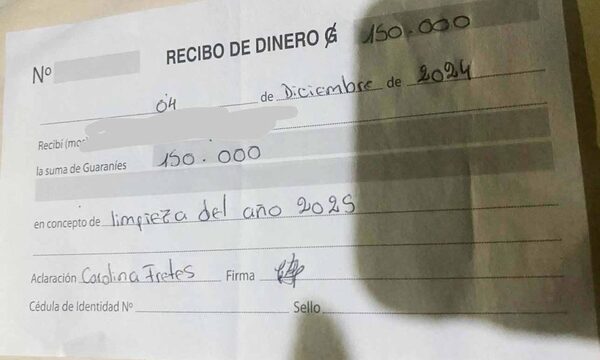 RECIBO DE DINERO ₲ 150.000
Nº
04 de Diciembre de 2024
Recibí (mo
la suma de Guaraníes 150.000
en concepto de limpieza del año 2025
Aclaración Carolina Fretes Firma
Cédula de Identidad Nº Sello